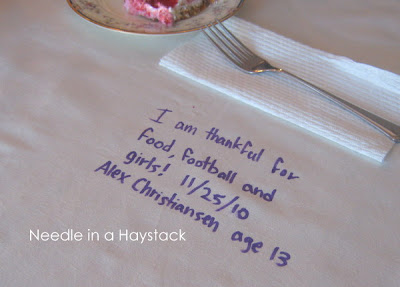 I am thankful for
food, football and
girls! 11/25/10
Alex Christiansen age 13
Needle in a Haystack